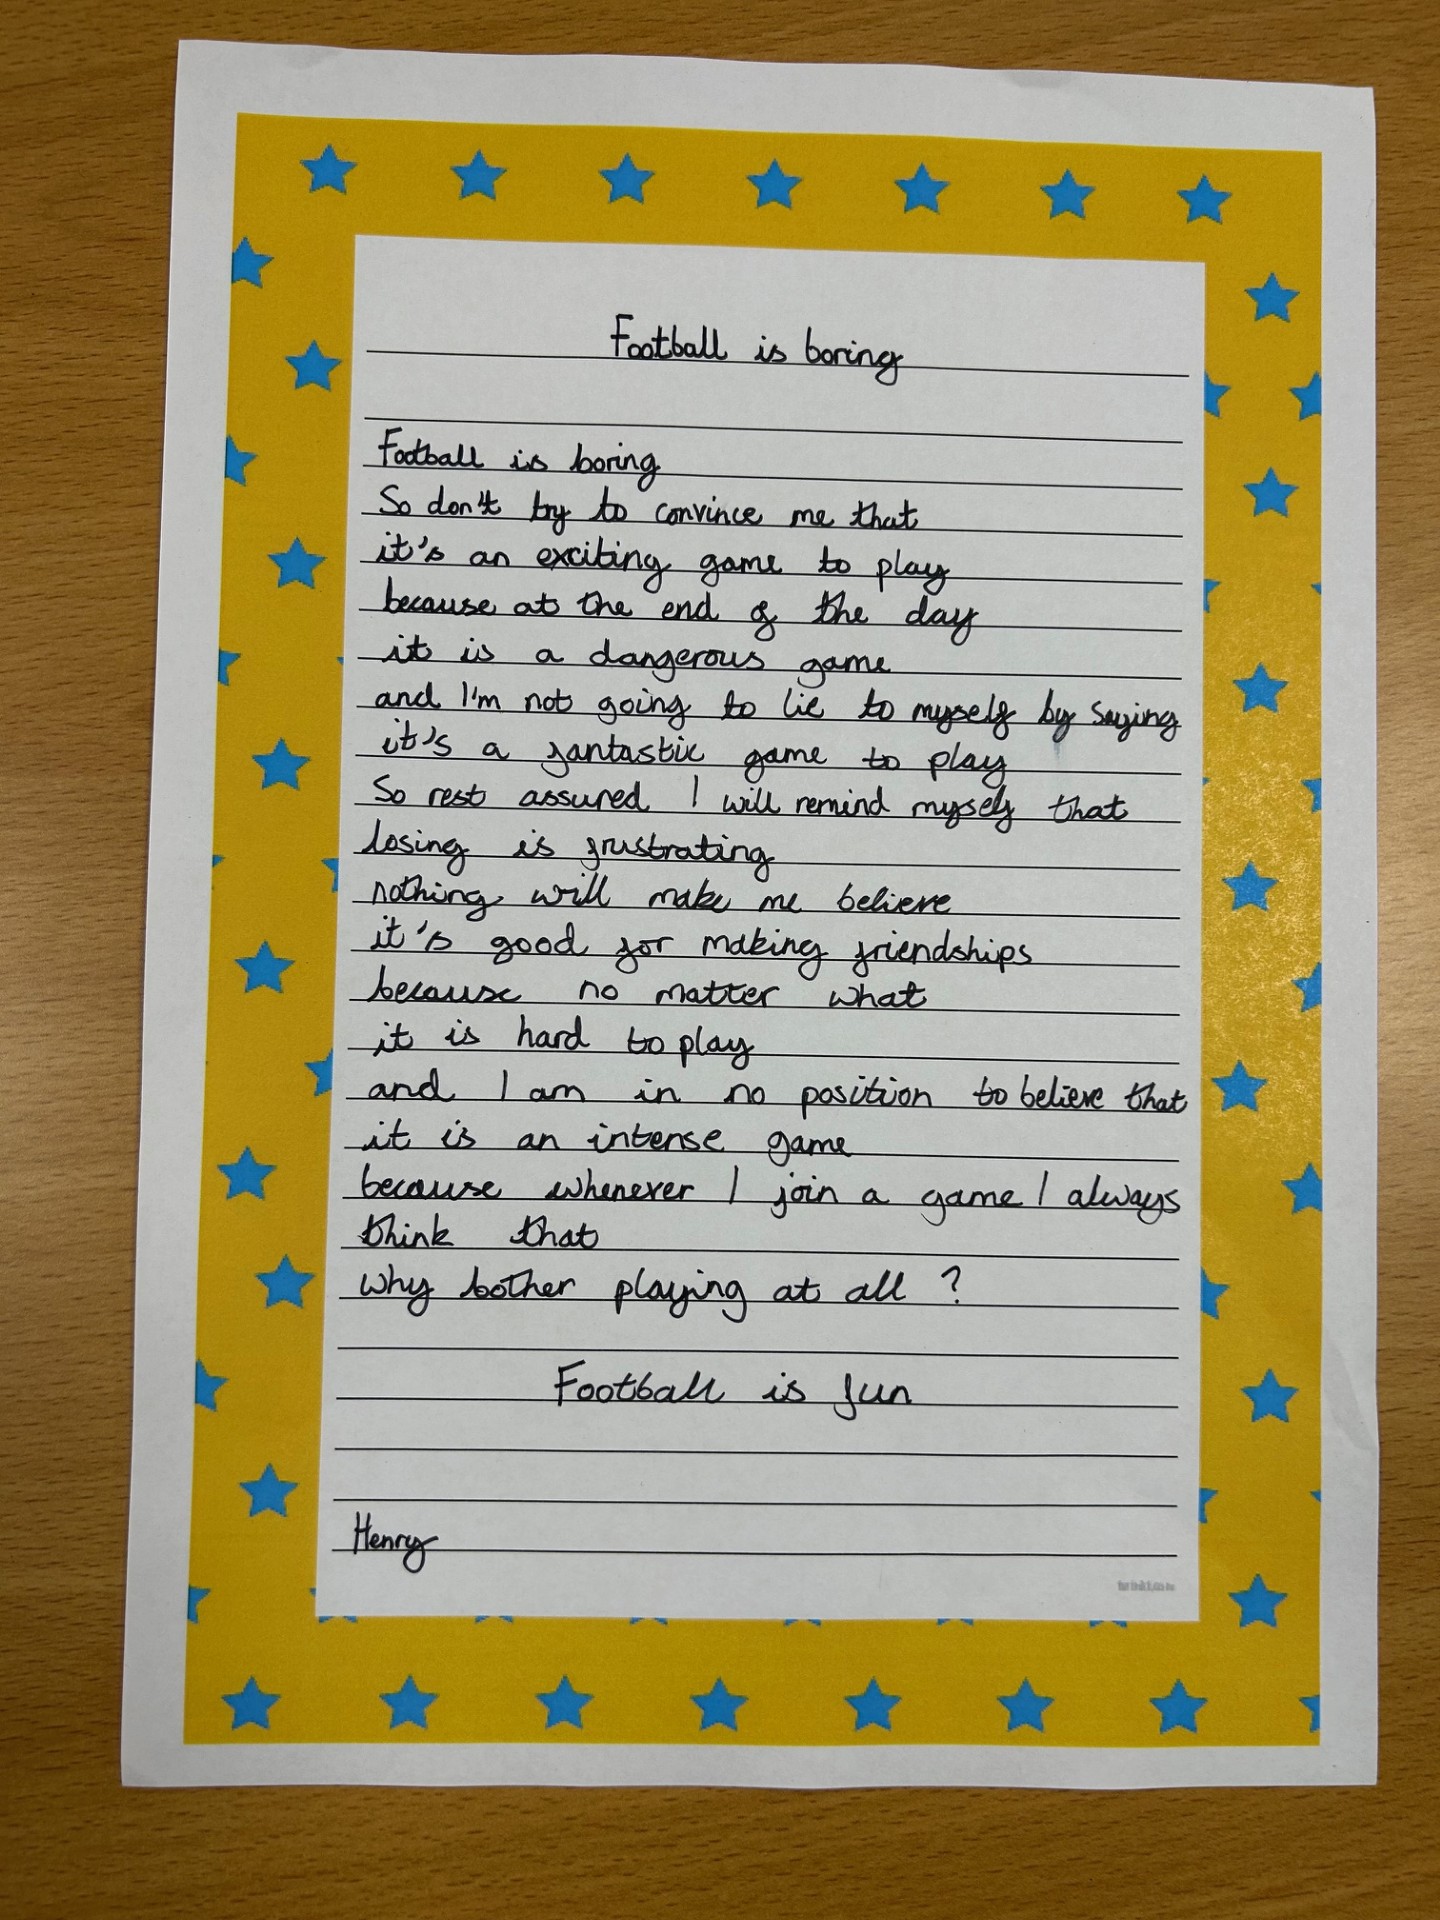 Football is boring
Football is boring
So don't try to convince me that
it's an exciting game to play
because at the end of the day
it is a dangerous game
and I'm not going to lie to myself by saying
it's a fantastic game to play
So rest assured I will remind myself that
losing is frustrating
nothing will make me believe
it's good for making friendships
because no matter what
it is hard to play
and I am in no position to believe that
it is an intense game
because whenever I join a game I always
think that
why bother playing at all ?
Football is fun
Henry